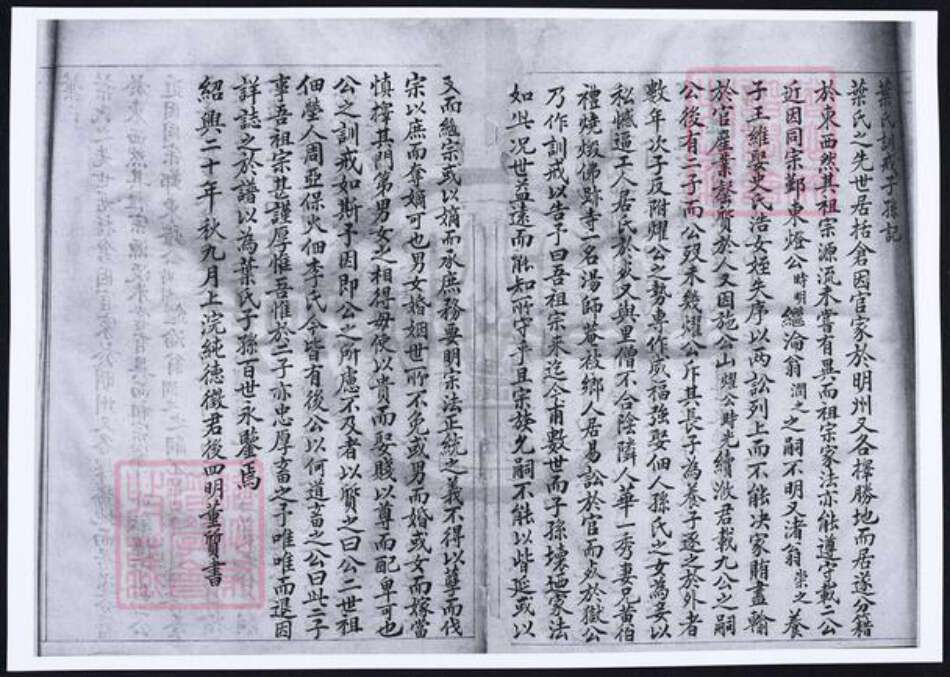 葉氏訓戒子孫記
葉氏之先世居括倉因官家於明州又各擇勝地而居遂分籍
於東西然其祖宗源流未嘗有異而祖宗家法亦能遵守載二公
近因同宗鄞東燈公時明繼淪翁潤之之嗣不明又渚翁崇之養
子王維娶史氏浩女姪失序以两訟列上而不能决家賄盡輸
於官產業罄鬻於人又因施公山耀公時光續澈君載九公之嗣
公後有二子而公歿未幾耀公斥其長子為養子逐之於外者
數年次子反附耀公之勢專作威福強娶佃人孫氏之女為妾以
私憾逼工人居氏於死又與里僧不合陰隣人華一秀妻兄黄伯
禮燒燬佛跡寺一名湯師菴被鄉人居易訟於官而死於獄公
乃作訓戒以告予曰吾祖宗来迄今甫數世而子孫壞地家法
如此况世益遠而能知所守乎且宗族允嗣不能以皆延或以
支而繼宗或以嫡而承庶務要明宗法正統之義不得以孽而伐
宗以庶而奪嫡可也男女婚姻世所不免或男而婚或女而嫁當
慎擇其門第男女之相得毋使以貴而娶賤以尊而配卑可也
公之訓戒如斯予因即公之所慮不及者以質之曰公二世祖
佃塋人周亞保火佃李氏今皆有後公以何道畜之公曰此二子
事吾祖宗甚謹厚惟吾惟於二子亦忠厚畜之予唯唯而退因
詳誌之於譜以為葉氏子孫百世永鑒焉
紹興二十年秋九月上浣純德徵君後四明董質書